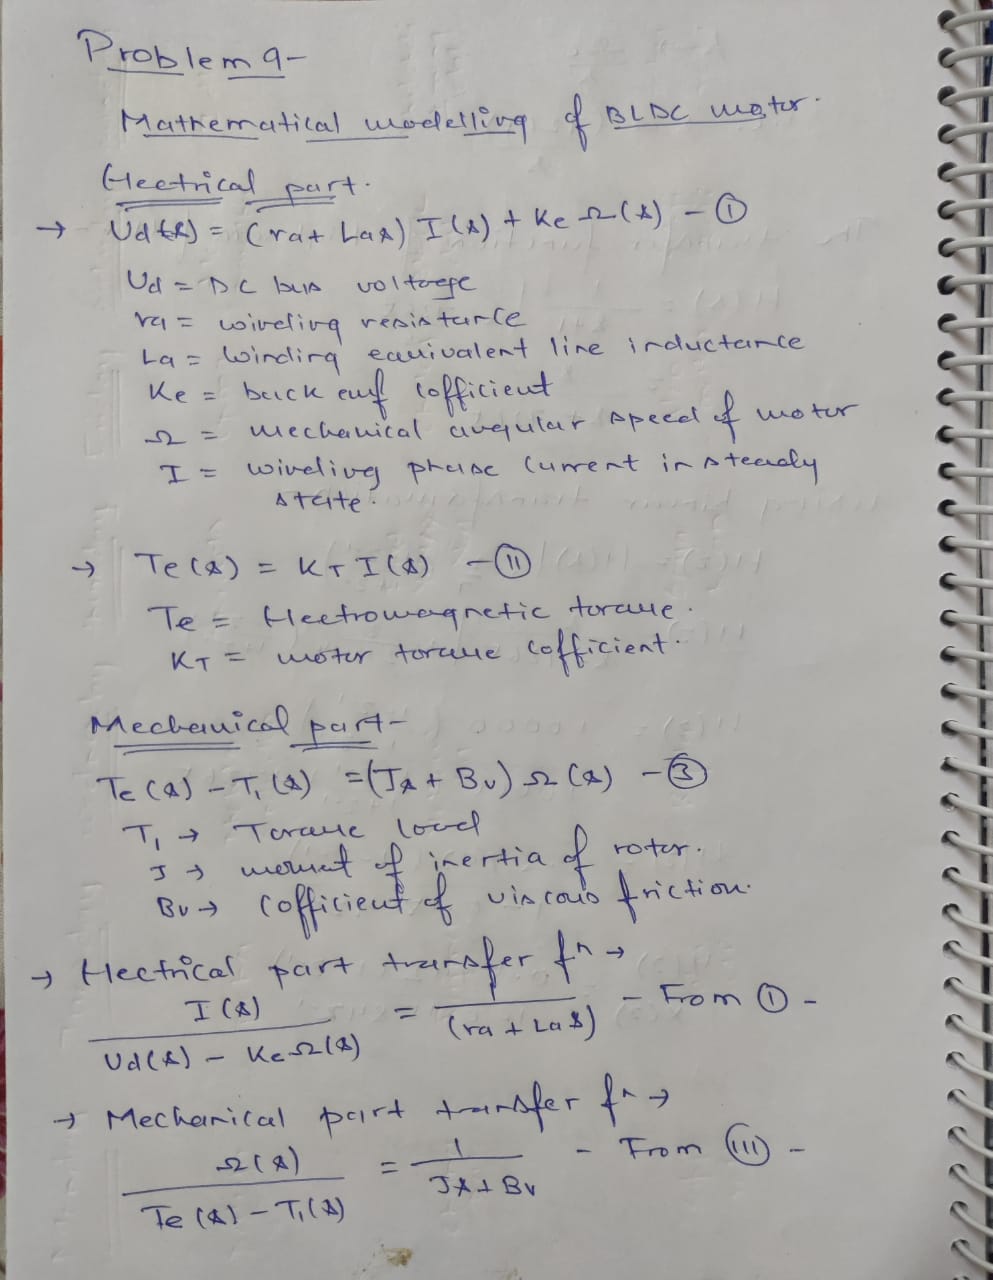 Problem 9-
Mathematical modelling of BLDC motor.
Electrical part.
→ Ud(s) = (ra + Las) I(s) + Ke Ω(s) - ①
Ud = DC bus voltage
ra = winding resistance
La = Winding equivalent line inductance
Ke = back emf cofficient
Ω = mechanical angular speed of motor
I = winding phase current in steady
state.
→ Te(s) = KT I(s) - ⑪
Te = Electromagnetic torque.
KT = motor torque cofficient.
Mechanical part-
Te(s) - T₁(s) = (Js + Bv) Ω(s) - ③
T₁ → Torque load
J → moment of inertia of rotor.
Bv → cofficient of viscous friction.
→ Electrical part transfer fn →
I(s) / Ud(s) - KeΩ(s) = 1 / (ra + Las) - From ① -
→ Mechanical part transfer fn →
Ω(s) / Te(s) - T₁(s) = 1 / Js + Bv - From (III) -